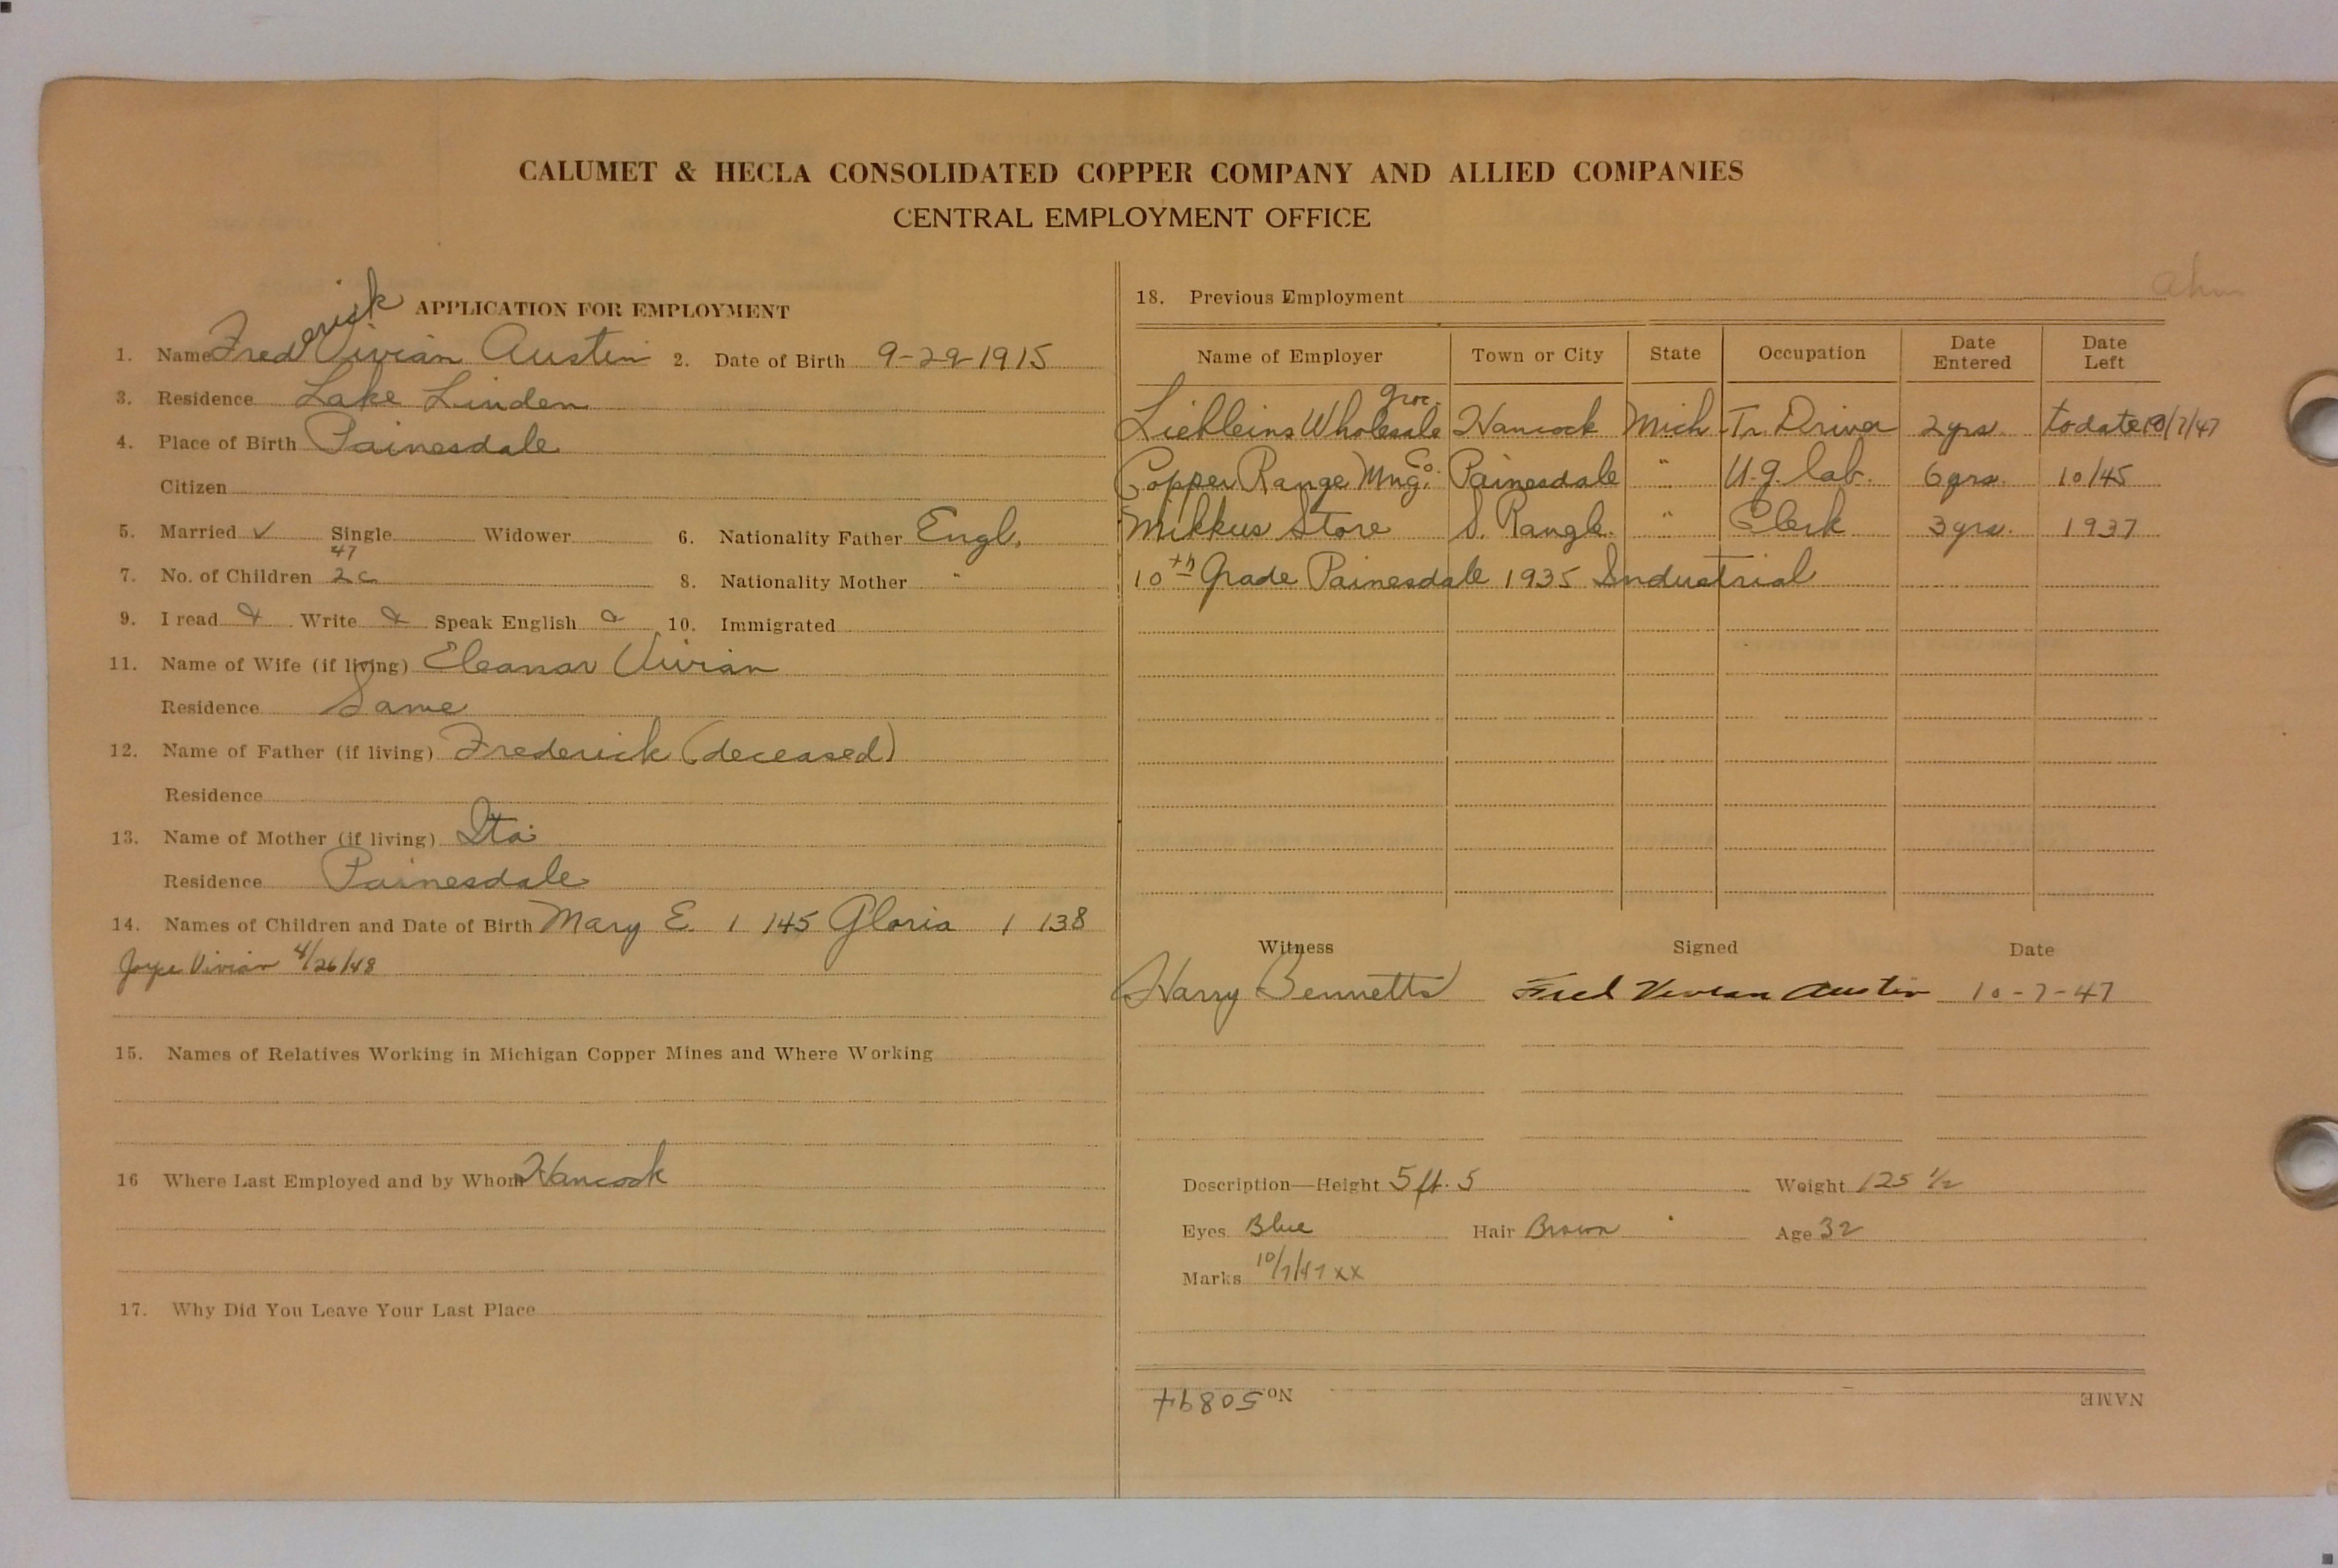 CALUMET & HECLA CONSOLIDATED COPPER COMPANY AND ALLIED COMPANIES
CENTRAL EMPLOYMENT OFFICE
APPLICATION FOR EMPLOYMENT
1. Name Frederick Vivian Austin 2. Date of Birth 9-29-1915
3. Residence Lake Linden
4. Place of Birth Painesdale
Citizen
5. Married ✓ Single Widower 6. Nationality Father Engl.
47
7. No. of Children 2c 8. Nationality Mother "
9. I read Write Speak English 10. Immigrated
11. Name of Wife (if living) Eleanor Vivian
Residence Same
12. Name of Father (if living) Frederick (deceased)
Residence
13. Name of Mother (if living) Ita
Residence Painesdale
14. Names of Children and Date of Birth Mary E. 1 /45 Gloria 1 /38
Joyce Vivian 4/26/48
15. Names of Relatives Working in Michigan Copper Mines and Where Working
16 Where Last Employed and by Whom Hancock
17. Why Did You Leave Your Last Place
18. Previous Employment
Name of Employer Town or City State Occupation Date Entered Date Left
Liebleins Wholesale groc. Hancock Mich Tr. Driver 2 yrs. to date 10/7/47
Copper Range Mng. Co. Painesdale " U.g. lab. 6 yrs. 10/45
Mikkus Store S. Range " Clerk 3 yrs. 1937
10th Grade Painesdale 1935 Industrial
Witness Signed Date
Harry Bennetts Fred Vivian Austin 10-7-47
Description—Height 5 ft. 5 Weight 125 1/2
Eyes Blue Hair Brown Age 32
Marks 10/7/47 xx
NAME No. 50894